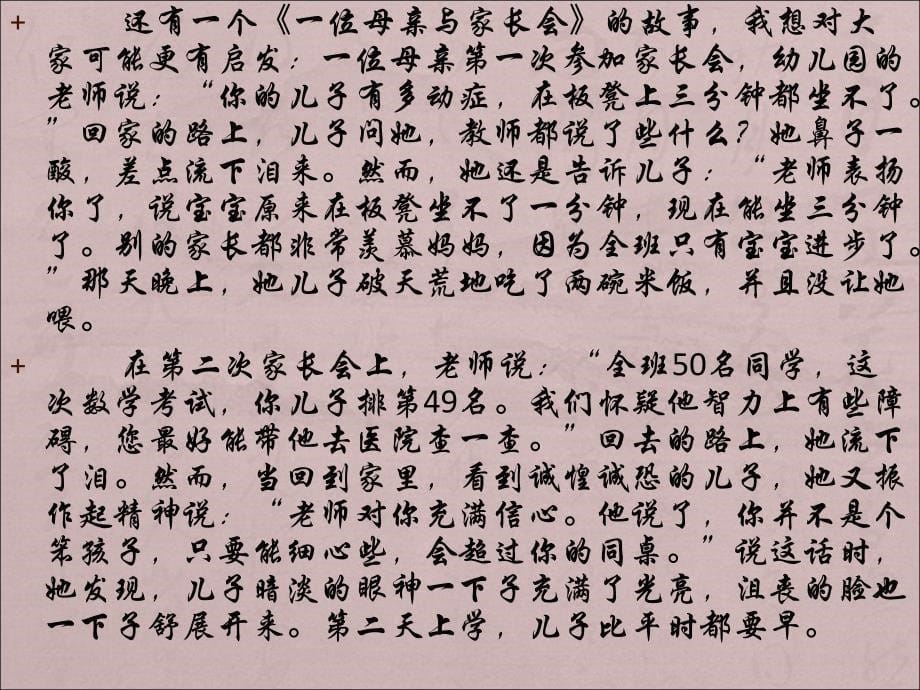 还有一个《一位母亲与家长会》的故事，我想对大
家可能更有启发：一位母亲第一次参加家长会，幼儿园的
老师说：“你的儿子有多动症，在板凳上三分钟都坐不了。
”回家的路上，儿子问她，教师都说了些什么？她鼻子一
酸，差点流下泪来。然而，她还是告诉儿子：“老师表扬
你了，说宝宝原来在板凳坐不了一分钟，现在能坐三分钟
了。别的家长都非常羡慕妈妈，因为全班只有宝宝进步了。
”那天晚上，她儿子破天荒地吃了两碗米饭，并且没让她
喂。
在第二次家长会上，老师说：“全班50名同学，这
次数学考试，你儿子排第49名。我们怀疑他智力上有些障
碍，您最好能带他去医院查一查。”回去的路上，她流下
了泪。然而，当回到家里，看到诚惶诚恐的儿子，她又振
作起精神说：“老师对你充满信心。他说了，你并不是个
笨孩子，只要能细心些，会超过你的同桌。”说这话时，
她发现，儿子暗淡的眼神一下子充满了光亮，沮丧的脸也
一下子舒展开来。第二天上学，儿子比平时都要早。